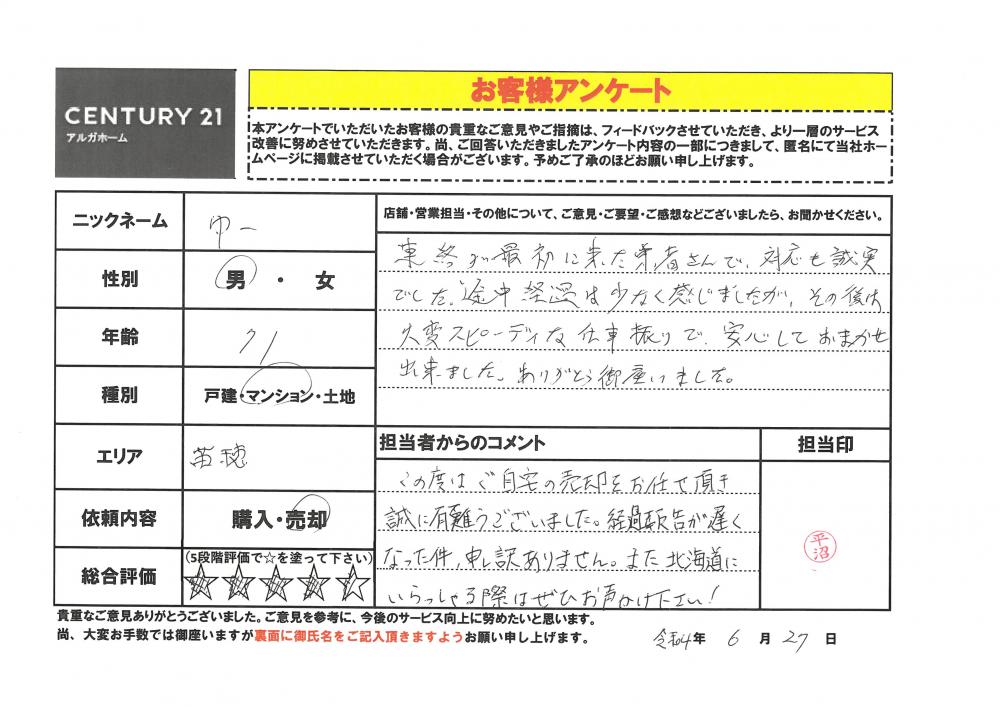 CENTURY 21
アルガホーム
お客様アンケート
本アンケートでいただいたお客様の貴重なご意見やご指摘は、フィードバックさせていただき、より一層のサービス
改善に努めさせていただきます。尚、ご回答いただきましたアンケート内容の一部につきまして、匿名にて当社ホー
ムページに掲載させていただく場合がございます。予めご了承のほどお願い申し上げます。
ニックネーム
ゆー
性別
男・女
年齢
71
種別
戸建・マンション・土地
エリア
苗穂
依頼内容
購入・売却
総合評価
(5段階評価で☆を塗って下さい)
店舗・営業担当・その他について、ご意見・ご要望・ご感想などございましたら、お聞かせください。
最初に来た業者さんで、対応も誠実
でした。途中経過は少なく感じましたが、その後は
大変スピーディな仕事振りで、安心しておまかせ
出来ました。ありがとう御座いました。
担当者からのコメント
この度はご自宅の売却をお任せ頂き
誠に有難うございました。経過報告が遅く
なった件、申し訳ありません。また北海道に
いらっしゃる際はぜひお声かけ下さい!
担当印
平沼
貴重なご意見ありがとうございました。ご意見を参考に、今後のサービス向上に努めたいと思います。
尚、大変お手数では御座いますが裏面に御氏名をご記入頂きますようお願い申し上げます。
令和4年 6月 27日